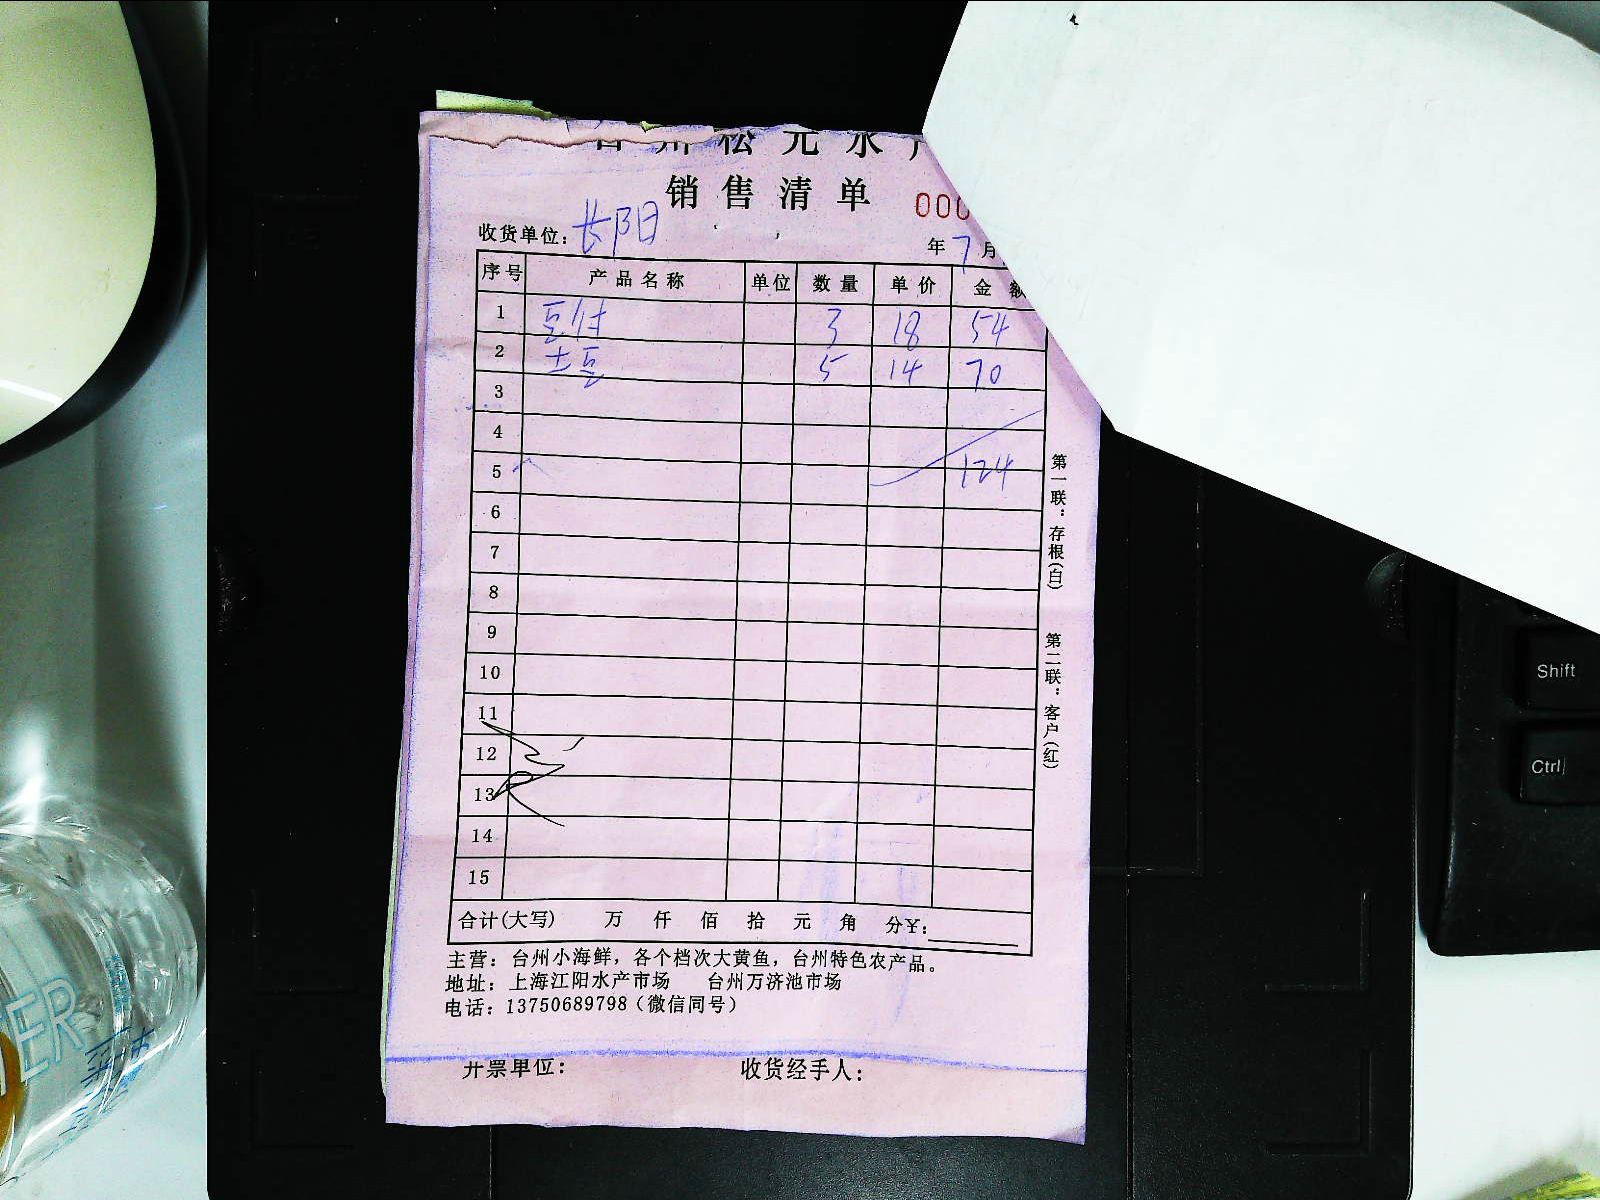 台州松元水产
销售清单 000
收货单位：长阳 年7月
序号 产品名称 单位 数量 单价 金额
1 豆付 3 18 54
2 土豆 5 14 70
3
4
5 124
6
7
8
9
10
11
12
13
14
15
合计(大写) 万 仟 佰 拾 元 角 分¥：
主营：台州小海鲜，各个档次大黄鱼，台州特色农产品。
地址：上海江阳水产市场 台州万济池市场
电话：13750689798（微信同号）
开票单位： 收货经手人：
第一联：存根(白)
第二联：客户(红)
Shift
Ctrl